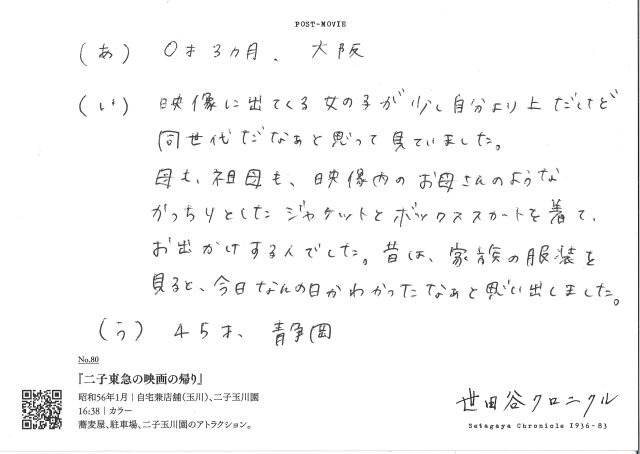 POST-MOVIE
(あ) 0才3カ月、大阪
(い) 映像に出てくる女の子が少し自分より上だけど
同世代だなぁと思って見ていました。
母も、祖母も、映像内のお母さんのような
がっちりとしたジャケットとボックススカートを着て、
お出かけする人でした。昔は、家族の服装を
見ると、今日なんの日かわかったなぁと思い出しました。
(う) 45才、静岡
No.80
『二子東急の映画の帰り』
昭和56年1月│自宅兼店舗(玉川)、二子玉川園
16:38│カラー
蕎麦屋、駐車場、二子玉川園のアトラクション。
世田谷クロニクル
Setagaya Chronicle 1936-83